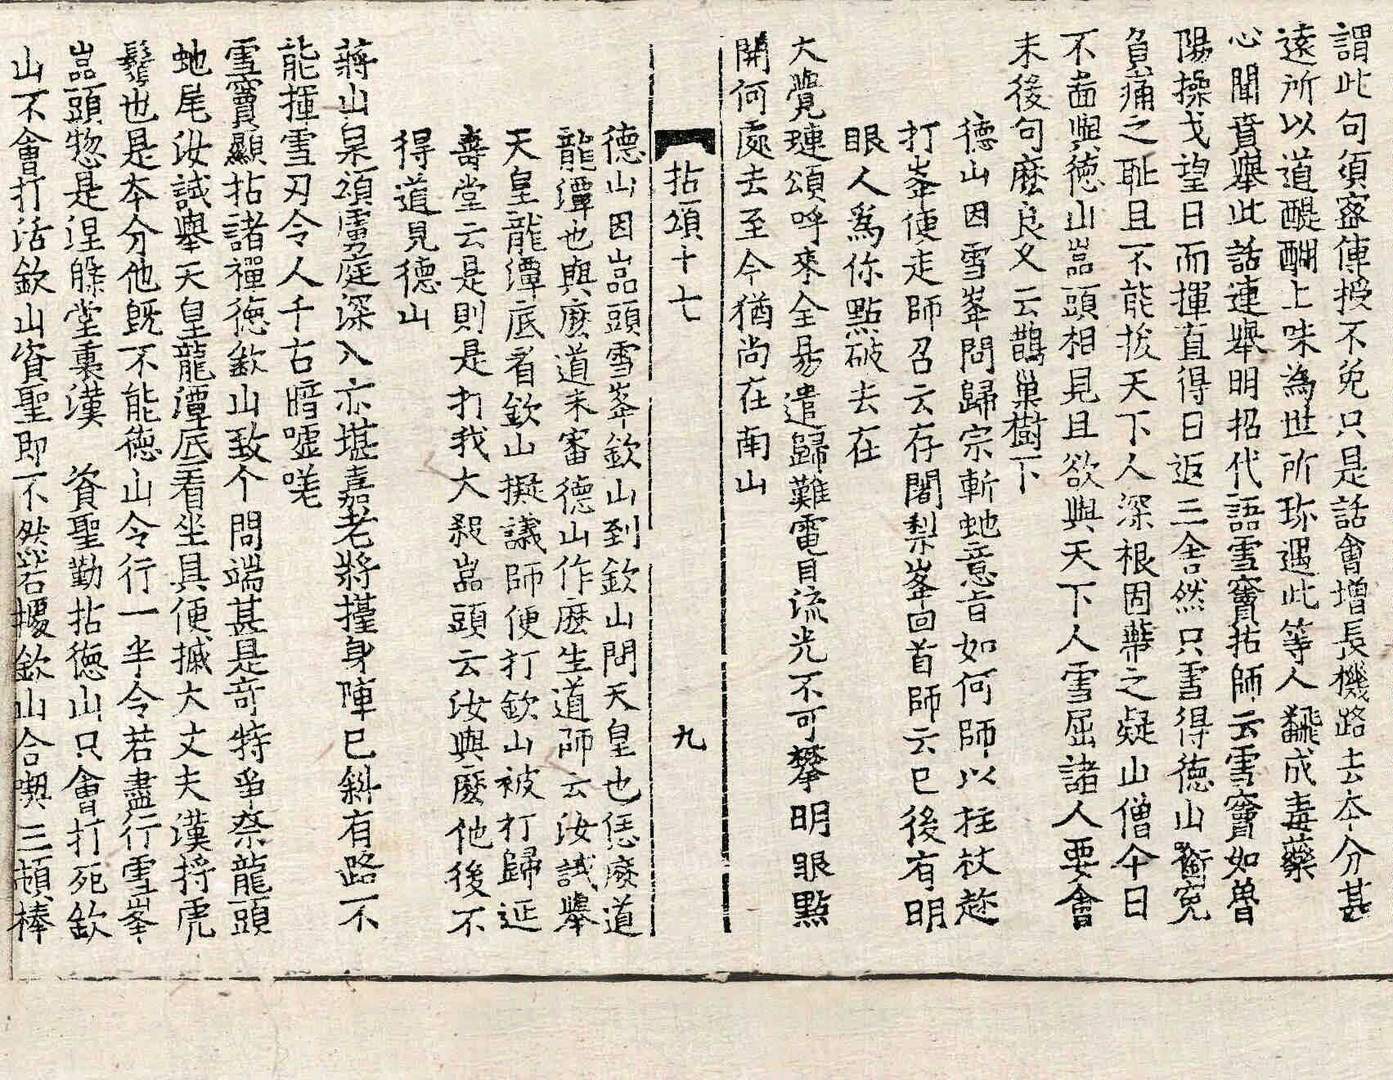 謂此句須密傳授不免只是話會增長機路去本分甚
遠所以道醍醐上味為世所珎遇此等人飜成毒藥
心聞賁舉此話連舉明招代語雪竇拈師云雪竇如魯
陽操戈望日而揮直得日返三舍然只雪得德山銜寃
負痛之恥且不能拔天下人深根固蔕之疑山僧今日
不啚與德山嵓頭相見且欲與天下人雪屈諸人要會
末後句麽良久云鵲巢樹下
德山因雪峯問歸宗斬虵意旨如何師以拄杖趂
打峯便走師召云存闍梨峯回首師云已後有明
眼人爲你點破去在
大覺璉頌呼來全易遣歸難電目流光不可攀明眼點
開何處去至今猶尚在南山
拈頌十七 九
德山因嵓頭雪峯欽山到欽山問天皇也恁麽道
龍潭也與麽道未審德山作麽生道師云汝試舉
天皇龍潭底看欽山擬議師便打欽山被打歸延
壽堂云是則是打我大殺嵓頭云汝與麽他後不
得道見德山
蔣山杲頌虜庭深入亦堪嘉老將擡身陣已斜有路不
能揮雪刃令人千古暗噓嗟
雪竇顯拈諸禪德欽山致个問端甚是竒特爭奈龍頭
虵尾汝試舉天皇龍潭底看坐具便摵大丈夫漢捋虎
鬚也是本分他旣不能德山令行一半令若盡行雪峯
嵓頭惣是涅槃堂裏漢 資聖勤拈德山只會打死欽
山不會打活欽山資聖即不然若據欽山合喫三頓棒